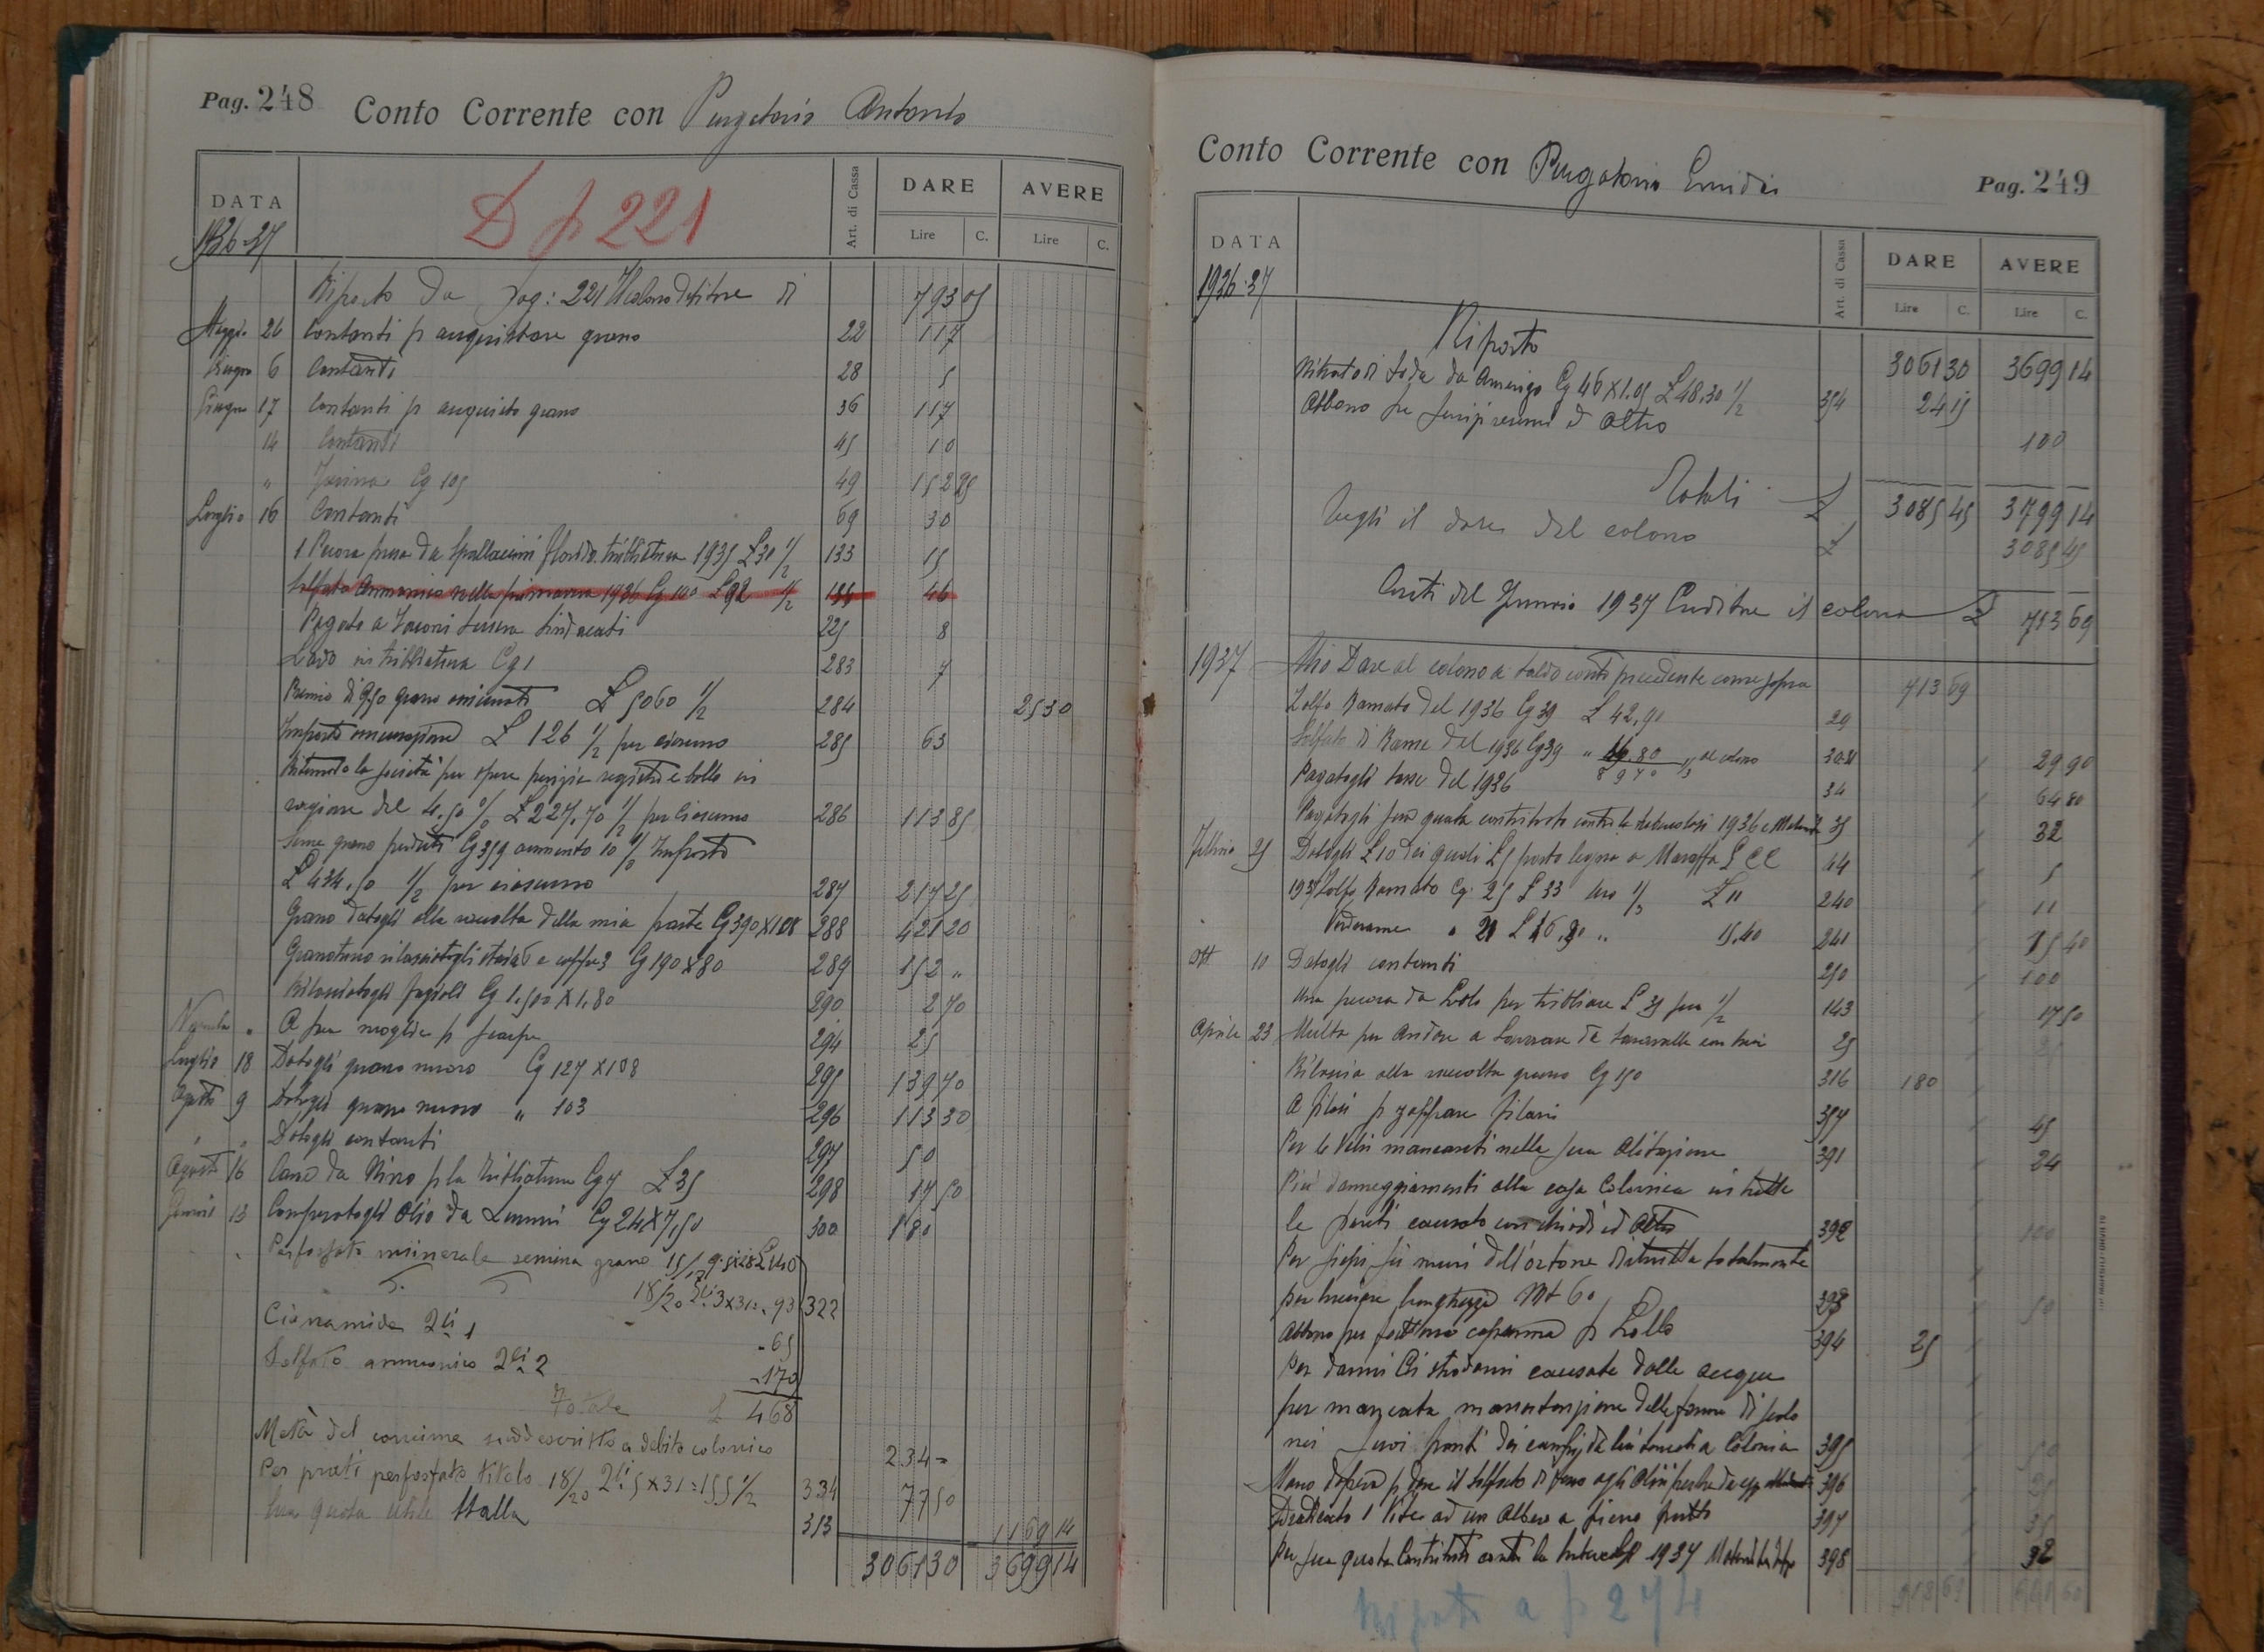 Pag. 248
Conto Corrente con Purgatorio Antonio
DATA
1936-37
D p 221
Art. di Cassa
DARE
AVERE
Lire C. Lire C.
Riporto da pag: 221 Il colono debitore di 793 05
Maggio 26 Contanti p acquistare grano 22 117
Giugno 6 Contanti 28 5
Giugno 17 Contanti p acquisto grano 36 117
14 Contanti 45 10
" Farina Cg 105 49 152 25
Luglio 16 Contanti 69 30
1 Pecora presa da Spallaccini Florido trebbiatura 1935 £30 1/2 133 15
Solfato Ammonico nella primavera 1936 Cg 100 £92 1/2 46
Pagato a tessera Sindacati 225 8
Lardo in trebbiatura Cg 1 283 7
Premio di grano £ 5060 1/2 284 2530
Importo £ 126 1/2 per ciascuno 285 63
la società per spese perizia registro e bollo in
ragione del 4,50 % £ 227.70 1/2 per ciascuno 286 113 85
Seme grano Cg 359 aumento 10 % Importo
£ 434,50 1/2 per ciascuno 287 217 25
Grano datogli alla raccolta della mia parte Cg 390 X 1.08 288 421 20
Granoturco rilasciatogli e coffe 3 Cg 190 X 80 289 152 "
Rilasciatogli fagioli Cg 1.500 X 1.80 290 2 70
A sua moglie p scarpe 294 25
Luglio 18 Datogli grano nuovo Cg 127 X 108 295 139 70
Agosto 9 Datogli grano nuovo " 103 296 113 30
" " Datogli contanti 297 50
Agosto 16 Carne da Nino p la trebbiatura Cg 7 £ 35 298 17 50
13 Comperatogli olio da Cg 24 X 7,50 300 180
Perfosfato minerale semina grano 15/17 £ 140
18/20 3 X 31 = 93 322
Cianamide 2li 1 - 65
Solfato ammonico 2li 2 - 170
Totale £ 468
Metà del concime suddescritto a debito colonico 234 =
Per prati perfosfato titolo 18/20 2li 5 X 31 = 155 1/2 334 77 50
Sua quota utile Stalla 313 1169 14
3061 30 3699 14
Conto Corrente con Purgatorio Emidio
Pag. 249
DATA
1936-37
Art. di Cassa
DARE
AVERE
Lire C. Lire C.
Riporto 3061 30 3699 14
Nitrato di Soda da Amerigo Cg 46 X 1.05 £ 48.30 1/2 354 24 15
Abbono ed altro 100
Totali £ 3085 45 3799 14
Tolgli il dare del colono £ 3085 45
Creditore il colono £ 713 69
1937 Mio Dare al colono a saldo conto precedente come sopra 713 69
Zolfo Ramato del 1936 Cg 39 £ 42,90 29
Solfato di Rame del 1936 Cg 39 " 46.80 al colono 29 90
8970
Pagatogli tasse del 1936 34 64 80
Pagatogli sua quota contributo contro la tubercolosi 1936 e Maternità 35 32
Febbraio 25 Datogli £ 10 dei quali £5 porto legna a 44 5
1937 Zolfo Ramato Cg. 25 £ 33 suo 1/3 £ 11 240 11
Verderame " 21 £ " 15.40 241 15 40
Ott. 10 Datogli contanti 250 100
Una pecora da Lollo per trebbiare £ 35 sua 1/2 143 17 50
Aprile 23 Multa per andare a 25
Rilascia alla raccolta grano Cg 150 316 180
A p zappare filari 357 45
Per le Vetri mancanti nella sua abitazione 391 24
Più danneggiamenti alla casa Colonica in tutte
le pareti causato con chiodi ed altro 392 100
Per siepi su muri dell'ortone distrutta totalmente
per lunghezza Mt 60 393 50
Abbono per capanna p Lollo 394 25
Per danni causate dalle acque
per mancata manutenzione delle forme di scolo
nei fronti dei campi colonia 395 50
Mano d'opera p dare il solfato di ferro agli olivi 396 25
Sradicato 1 Vite ad un albero a pieno frutto 397 35
Per sua quota Contributi contro la tubercolosi 1937 Maternità 398 32
918 69
Riporto a p 274